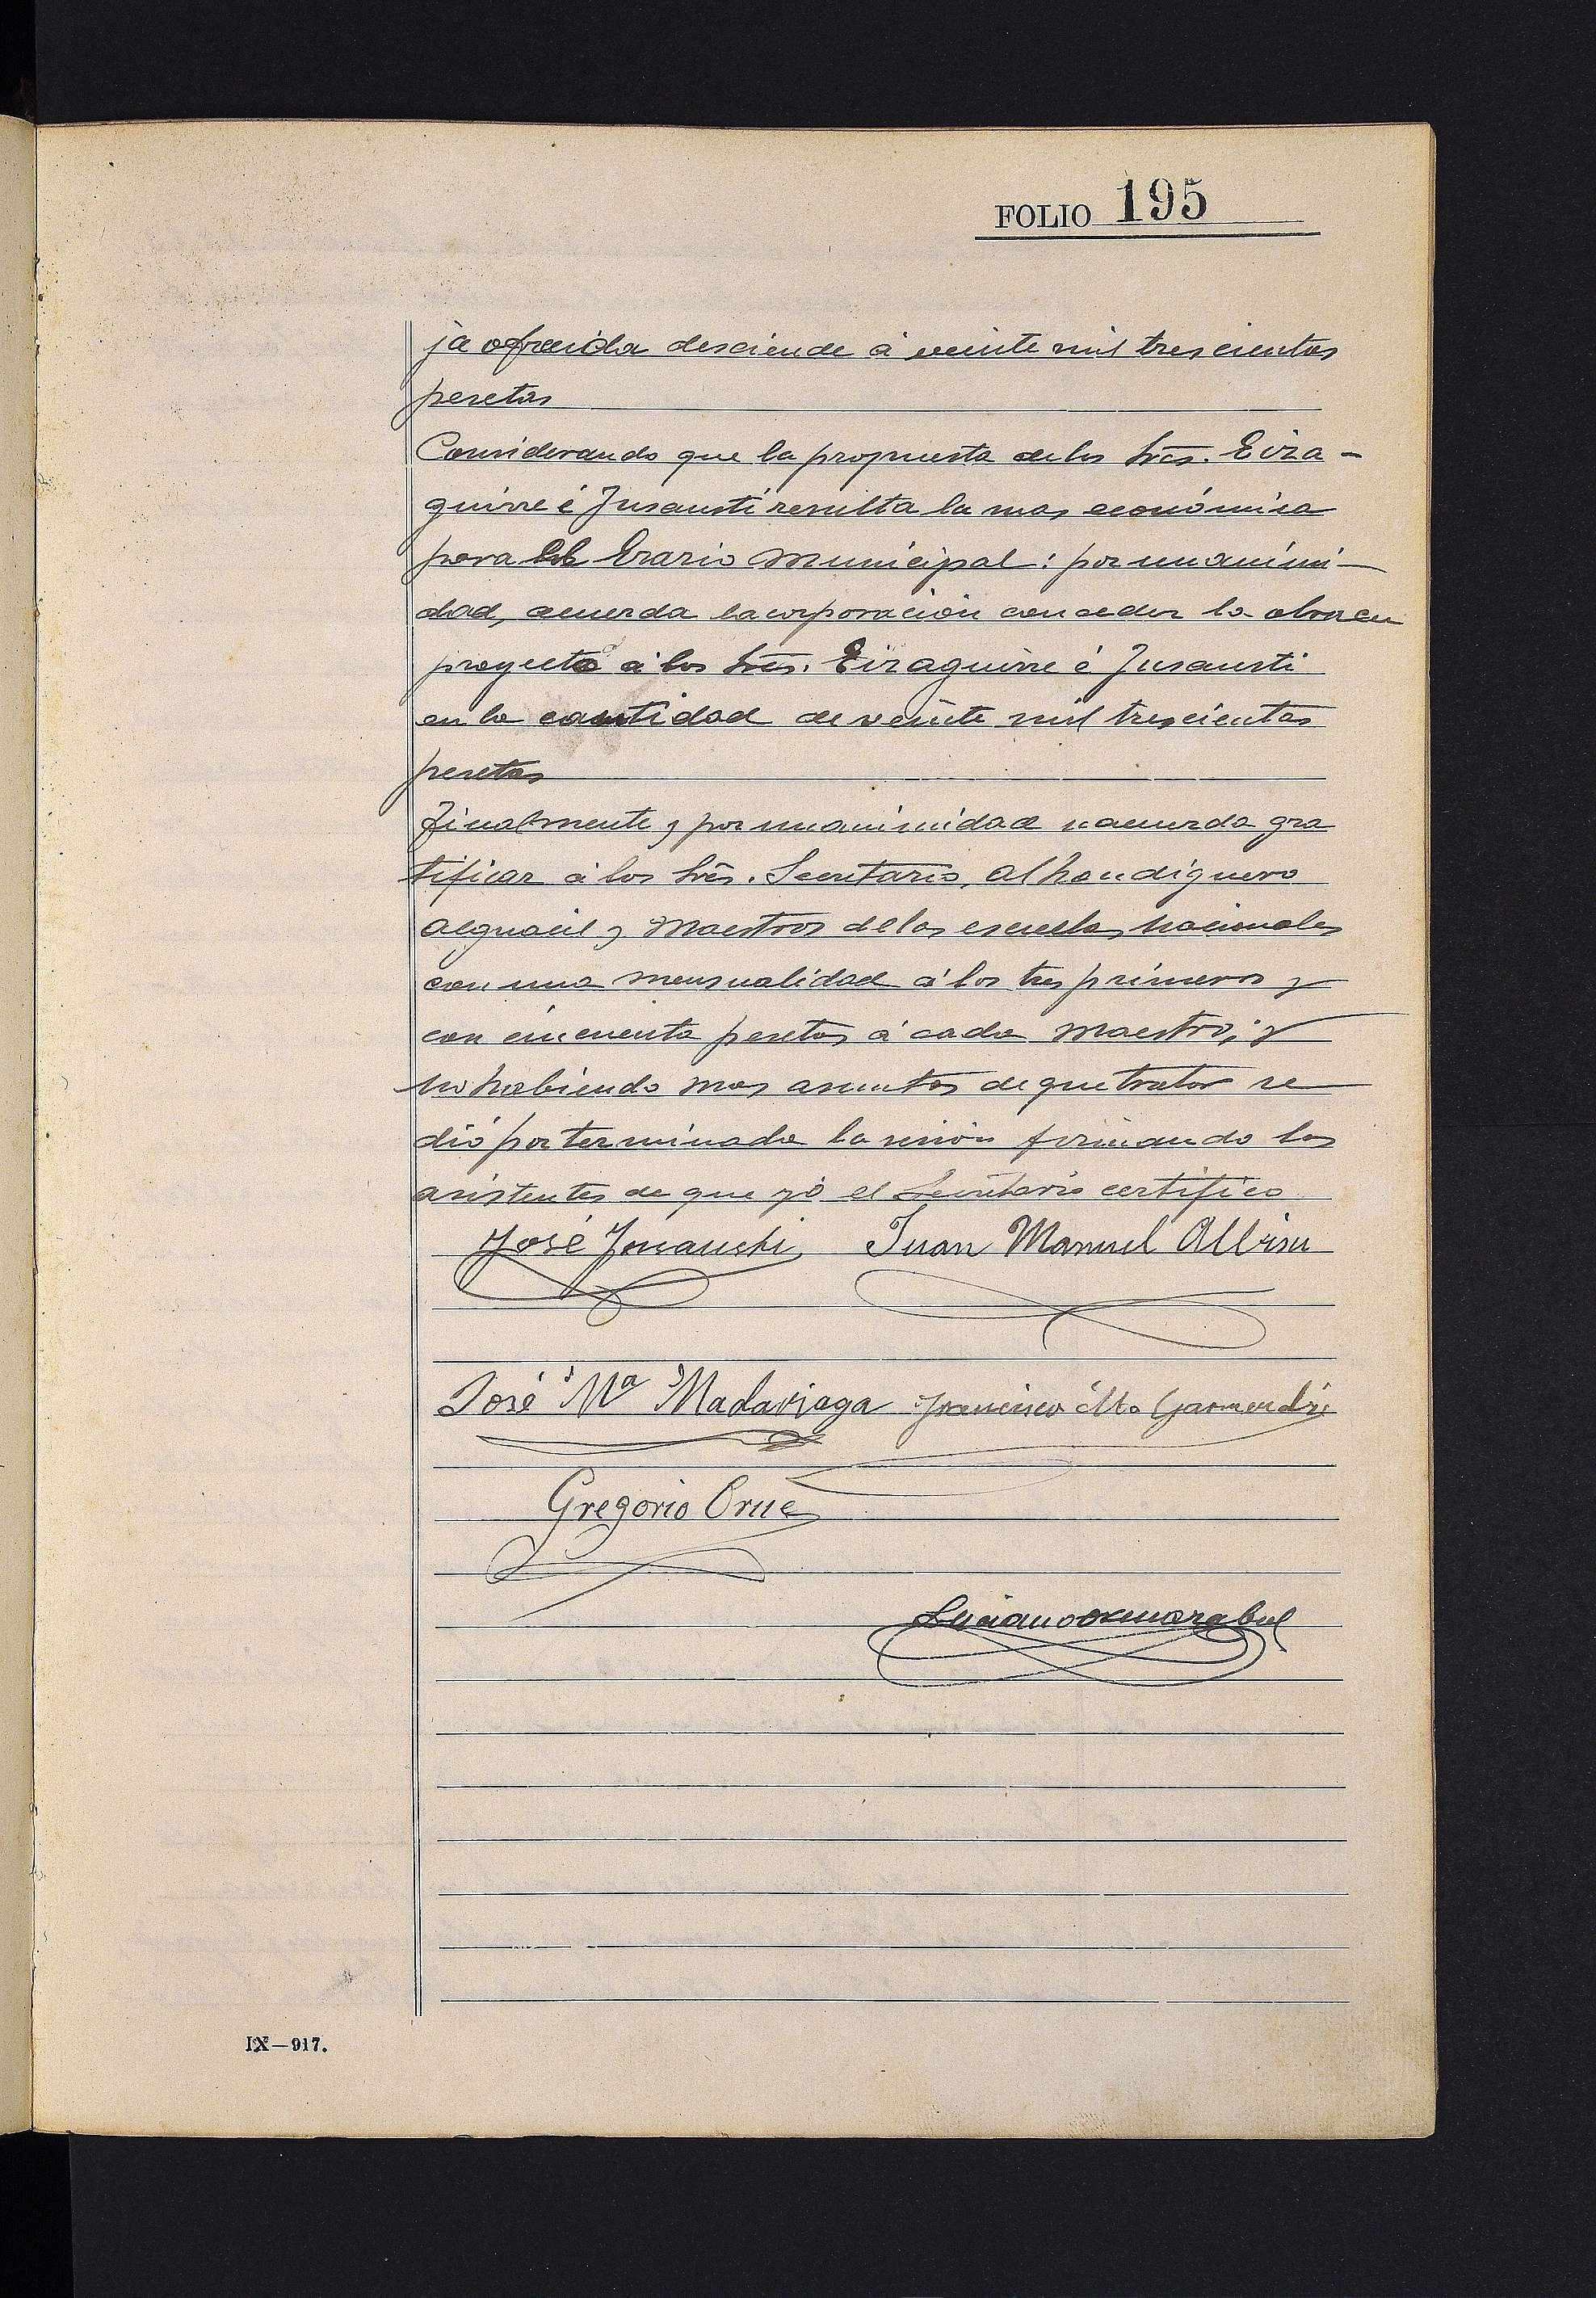 FOLIO 195
ja ofrecida desciende á veinte mil trescientas
pesetas
Considerando que la propuesta de los Srēs. Eiza-
guirre é Jusausti resulta la mas económica
para el Erario Municipal: por unanimi-
dad, acuerda la corporación conceder la obra en
proyecto á los Srēs. Eizaguirre é Jusausti
en la cantidad de veinte mil trescientas
pesetas
Finalmente y por unanimidad se acuerda gra
tificar á los Srēs. Secretario, Alhondiguero
Alguacil y Maestros de las escuelas nacionales
con una mensualidad á los tres primeros y
con cincuenta pesetas á cada Maestro; y
no habiendo mas asuntos de que tratar se
dió por terminada la sesión firmando los
asistentes de que yó el Secretario certifico
José Juan Manuel Albisu
José Mª Madariaga Francisco Mª Garmendia
Gregorio Orue
Luciano
IX—917.